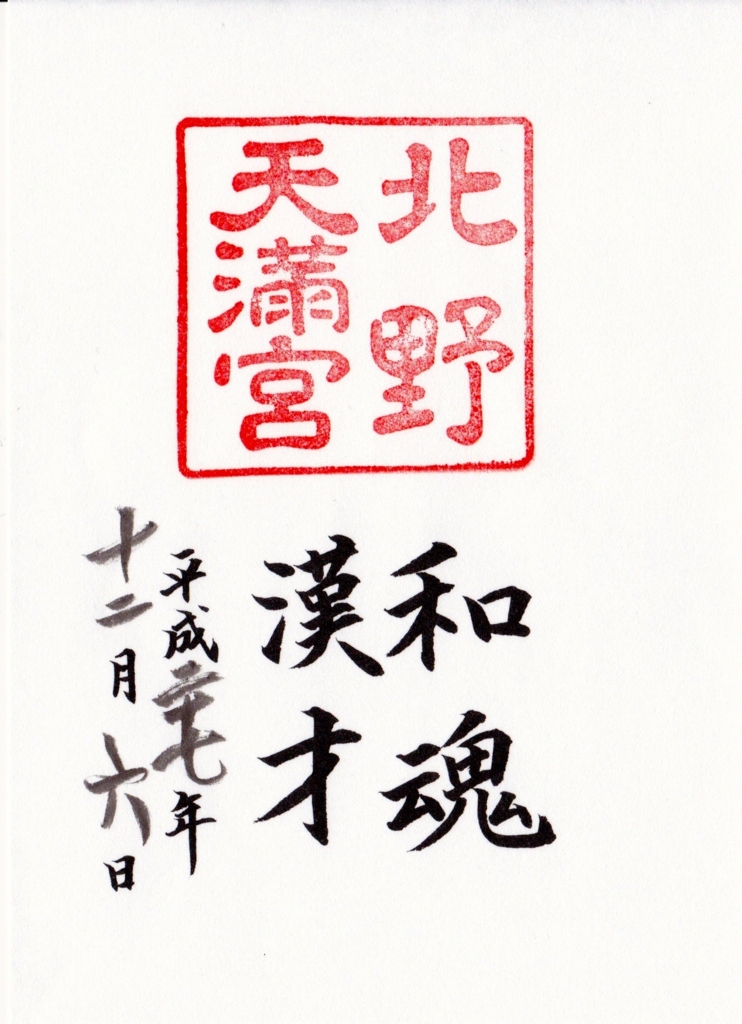 北野
天満宮
和魂
漢才
平成二十七年
十二月六日